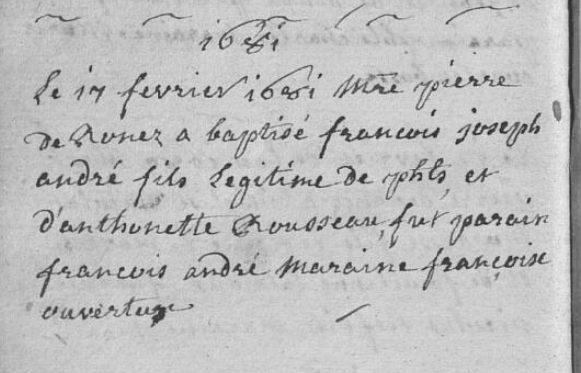 1681
Le 17 fevrier 1681 Mre pierre
de Ronez a baptisé francois joseph
andré fils legitime de phls et
d'anthonette Rousseau, fut parain
francois andré maraine françoise
ouverture